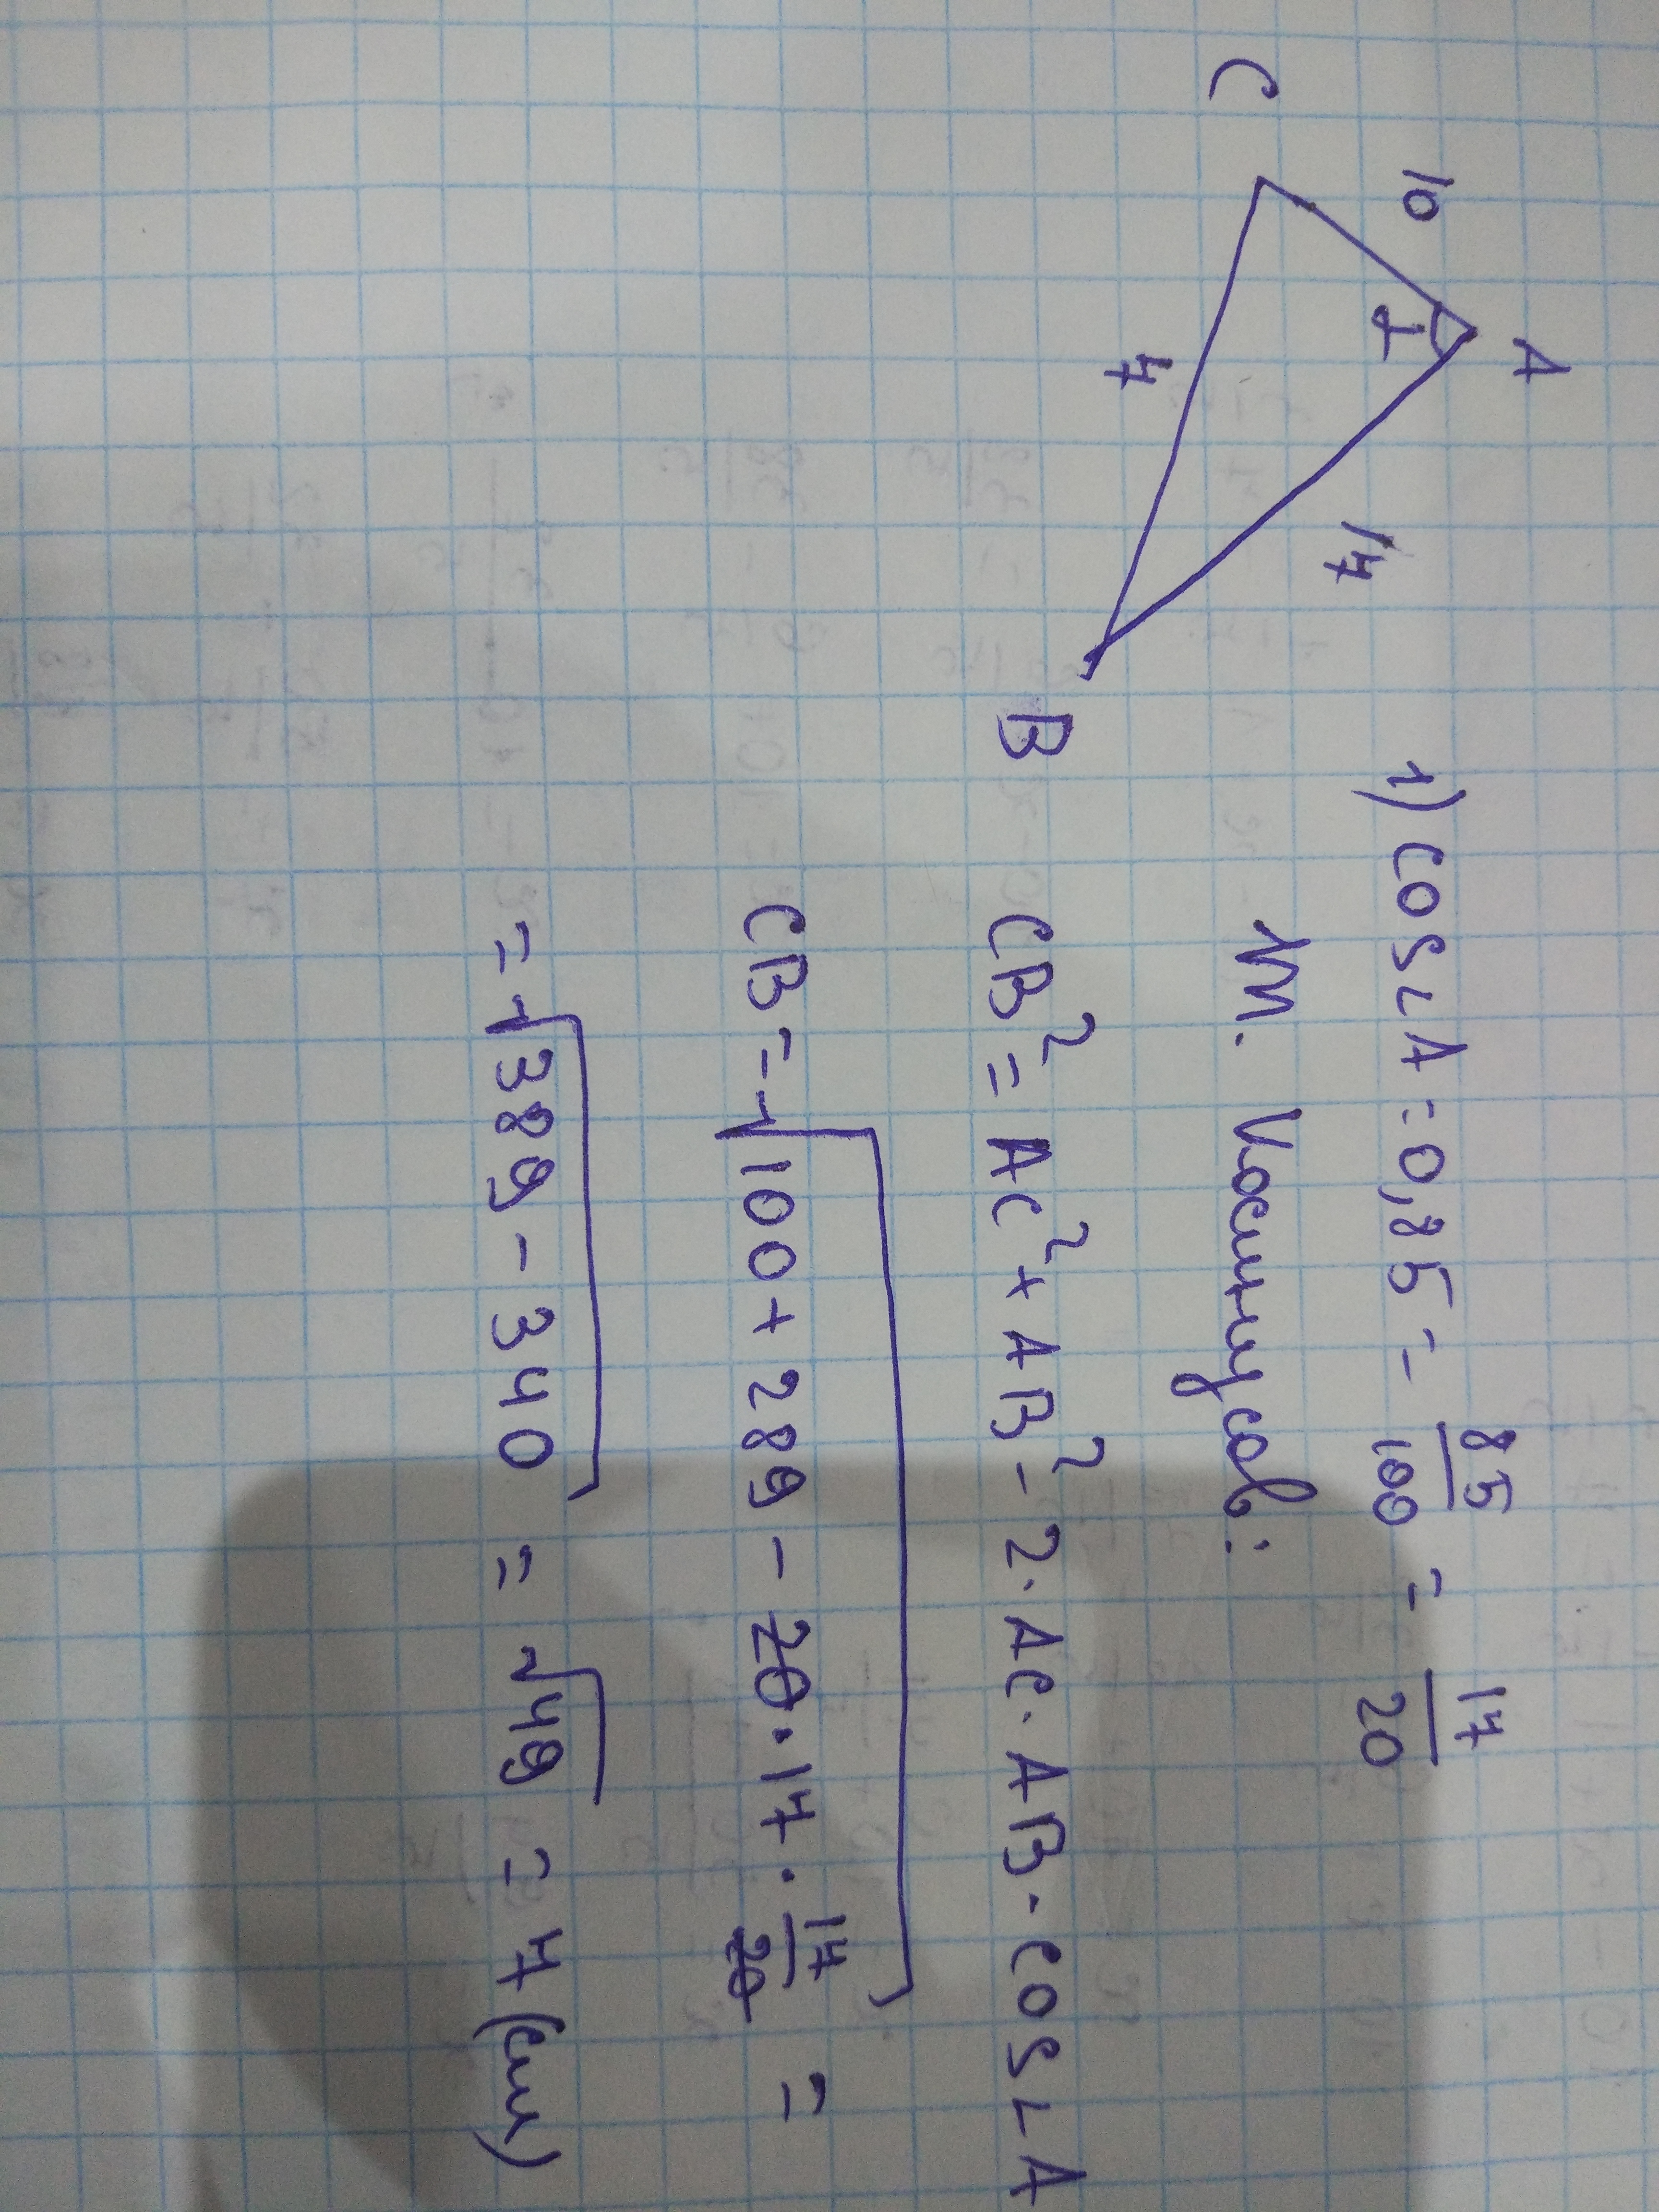 A
10
α
17
C
7
B
1) cos∠A = 0,85 = 85/100 = 17/20
т. Косинусов:
CB² = AC² + AB² - 2·AC·AB·cos∠A
CB = √100 + 289 - 20·17·17/20 =
= √389 - 340 = √49 = 7 (см)